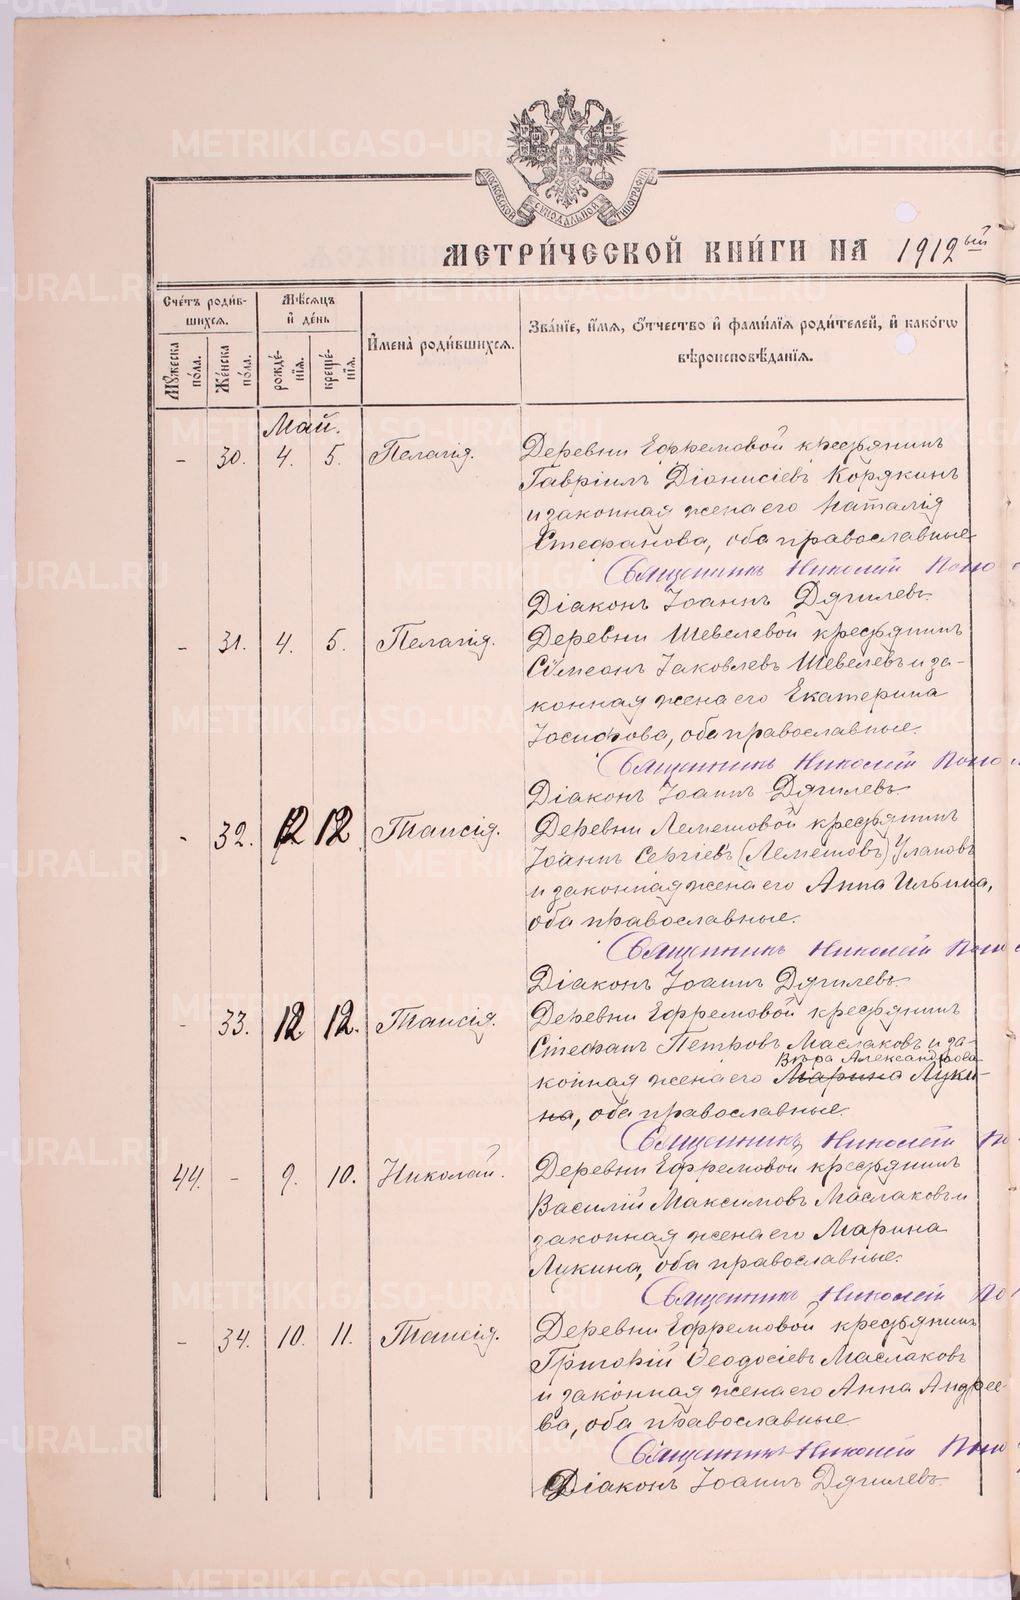 МОСКОВСКОЙ СѴНОДАЛЬНОЙ ТИПОГРАФІИ
МЕТРИ́ЧЕСКОЙ КНИ́ГИ НА 1912ый
Сче́тъ роди́в-
шихся.
Мѣ́сяцъ
и҆ де́нь
И҆мена̀ роди́вшихся.
Зва́нїе, и҆́мя, ѻ҆́тчество и҆ фами́лїя роди́телей, и҆ како́гѡ
вѣроисповѣ́данїя.
Мꙋ́жеска по́ла.
Же́нска по́ла.
рожде́-нїя.
креще́-нїя.
Май.
- 30. 4. 5. Пелагія. Деревни Ефремовой крестьянинъ
Гавріилъ Діонисіевъ Корякинъ
и законная жена его Наталія
Стефанова, оба православные
Священникъ Николай Поно
Діаконъ Іоаннъ Дягилевъ.
- 31. 4. 5. Пелагія. Деревни Шевелевой крестьянинъ
Сѵмеонъ Іаковлевъ Шевелевъ и за-
конная жена его Екатерина
Іосифова, оба православные.
Священникъ Николай Поно
Діаконъ Іоаннъ Дягилевъ
- 32. 12 12 Таисія. Деревни Лемешовой крестьянинъ
Іоаннъ Сергіевъ (Лемешовъ) Улановъ
и законная жена его Анна Ильина,
оба православные.
Священникъ Николай Поно
Діаконъ Іоаннъ Дягилевъ
- 33. 12 12. Таисія. Деревни Ефремовой крестьянинъ
Стефанъ Петровъ Маслаковъ и за-
Вѣра Александрова
конная жена его Марина Луки-
на, оба православные.
Священникъ Николай По
44. - 9. 10. Николай. Деревни Ефремовой крестьянинъ
Василій Максимовъ Маслаковъ и
законная жена его Марина
Лукина, оба православные.
Священникъ Николай По
- 34. 10. 11. Таисія. Деревни Ефремовой крестьянинъ
Григорій Ѳеодосіевъ Маслаковъ
и законная жена его Анна Андрее-
ва, оба православные
Священникъ Николай Поно
Діаконъ Іоаннъ Дягилевъ.
METRIKI.GASO-URAL.RU